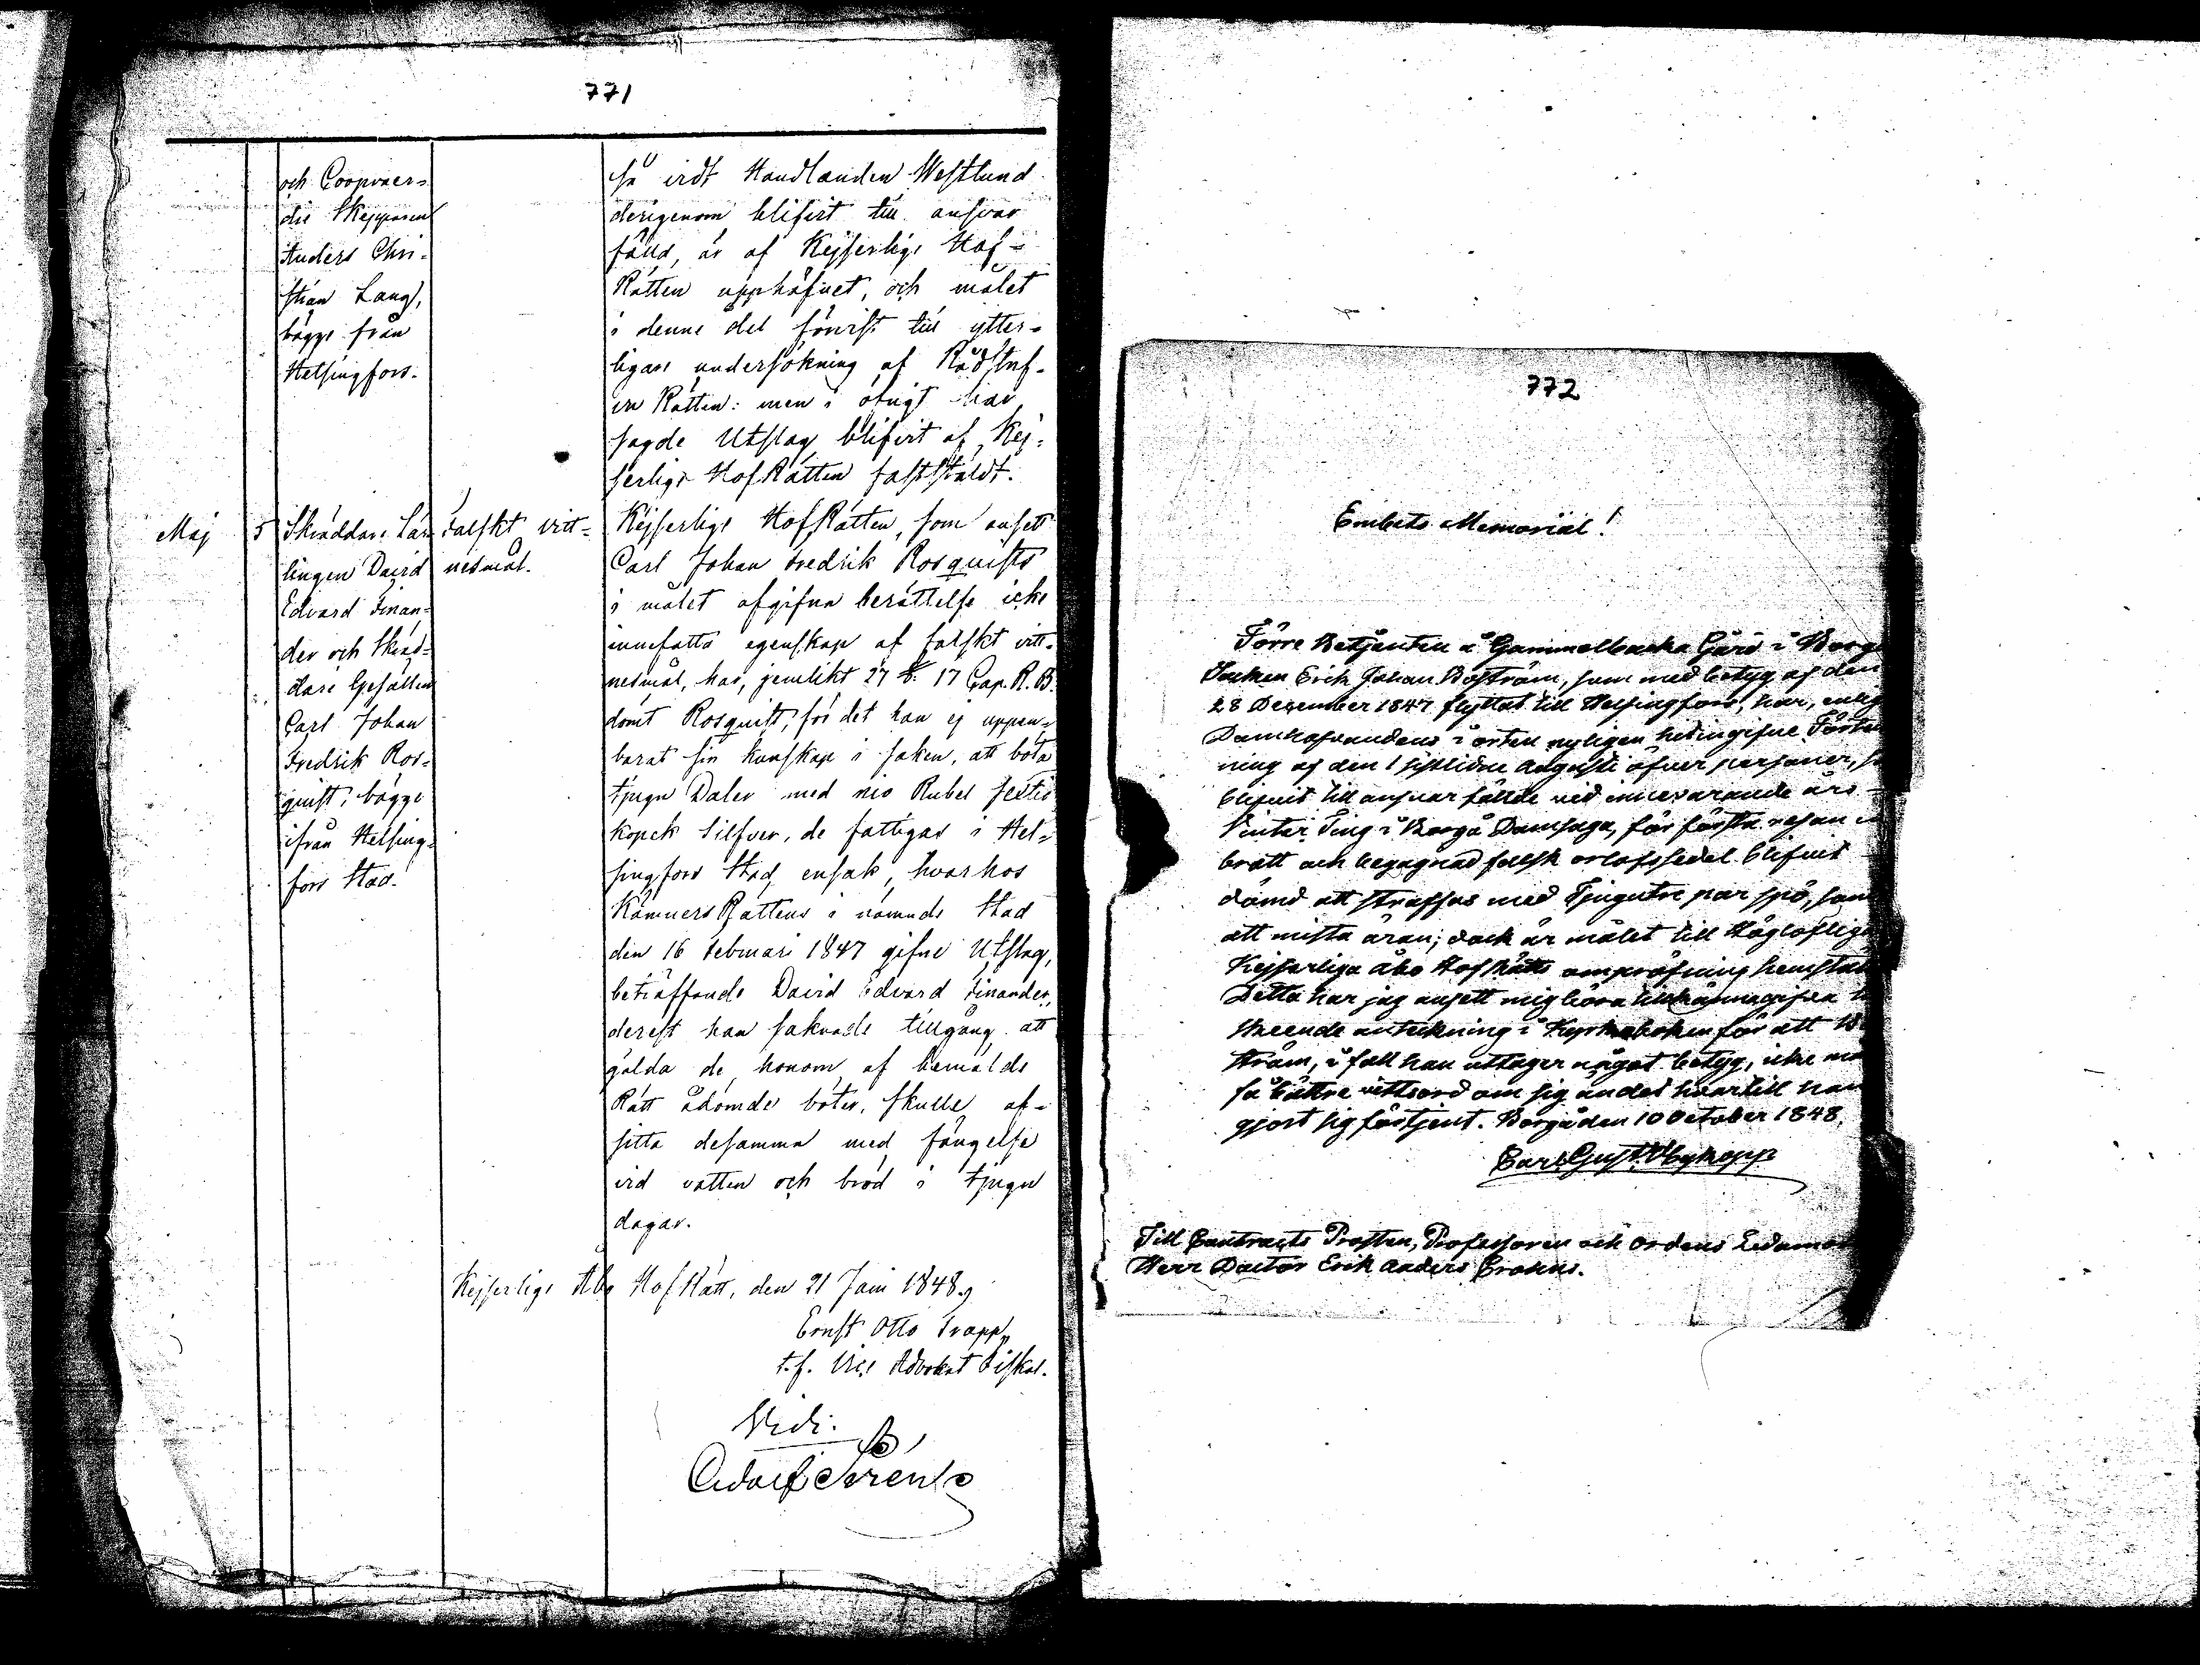 771
och Coopvaer-
die Skepparen
Anders Chri-
stian Lang,
bägge från
Helsingfors.
så vidt Handlanden Westlund
derigenom blifvit till ansvar
fälld, är af Kejserlige Hof-
Rätten upphäfvet, och målet
i denne del förvist till ytter-
ligare undersökning af Rådstuf-
vu Rätten: men i öfrigt har
sagde Utslag blifvit af Kej-
serlige HofRätten fastställdt.
Maj
5
Skräddare Lär-
lingen David
Edvard Finan-
der och Skräd-
dare Gesällen
Carl Johan
Fredrik Ros-
quist, bägge
ifrån Helsing-
fors Stad.
Falskt vitt-
nesmål.
Kejserlige HofRätten, som ansett
Carl Johan Fredrik Rosquists
i målet afgifna berättelse icke
innefatta egenskap af falskt vitt-
nesmål, har, jemlikt 27 §. 17 Cap. R.B.
dömt Rosquist, för det han ej uppen-
barat sin kunskap i saken, att böta
tjugu Daler med nio Rubel sextio
kopek Silfver, de fattigas i Hel-
singfors Stad ensak, hvarhos
KämnersRättens i nämnde Stad
den 16 Februari 1847 gifne Utslag,
beträffande David Edvard Finander,
derest han saknade tillgång att
gälda de honom af bemälde
Rätt ådömde böter, skulle af-
sitta desamma med fängelse
vid vatten och bröd i tjugu
dagar.
Kejserlige Åbo HofRätt, den 21 Juni 1848.
Ernst Otto Trapp,
t.f. Vice Advokat Fiskal.
Vidi.
772
Embets Memorial!
Förre Betjenten å Gammelbacka Gård i Borgå
Socken Erik Johan Boström, som med betyg af den
28 December 1847 flyttat till Helsingfors, har, enlig
Domhafvandens i orten nyligen hitingifne Förtek
ning af den 1 sistlidne Augusti öfver personer, so
blifvit till ansvar fällde vid innevarande års
Vinter Ting i Borgå Domsaga, för första resan
brott och begagnad falsk orlofssedel blifvit
dömd att straffas med Tjugutre par spö, samt
att mista äran; dock är målet till Höglofliga
Kejserliga Åbo HofRätts ompröfning hemstäl
Detta har jag ansett mig böra tillkännagifva
skeende anteckning i Kyrkoboken för att Bo
ström, i fall han uttager något betyg, icke må
få bättre vittsord om sig än det hvartill han
gjort sig förtjent. Borgå den 10 October 1848.
Carl Gust.
Till Contracts Prosten, Professoren och Ordens Ledamot
Herr Doctor Erik Anders Crohns.